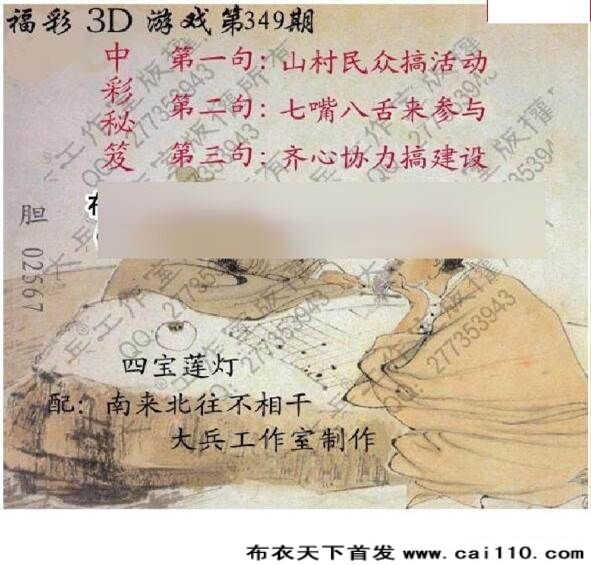 福彩 3D 游戏第349期
中彩秘笈
第一句：山村民众搞活动
第二句：七嘴八舌来参与
第三句：齐心协力搞建设
胆 02567
四宝莲灯
配：南来北往不相干
大兵工作室制作
大兵工作室版權所有
QQ:277353943
布衣天下首发 www.cai110.com